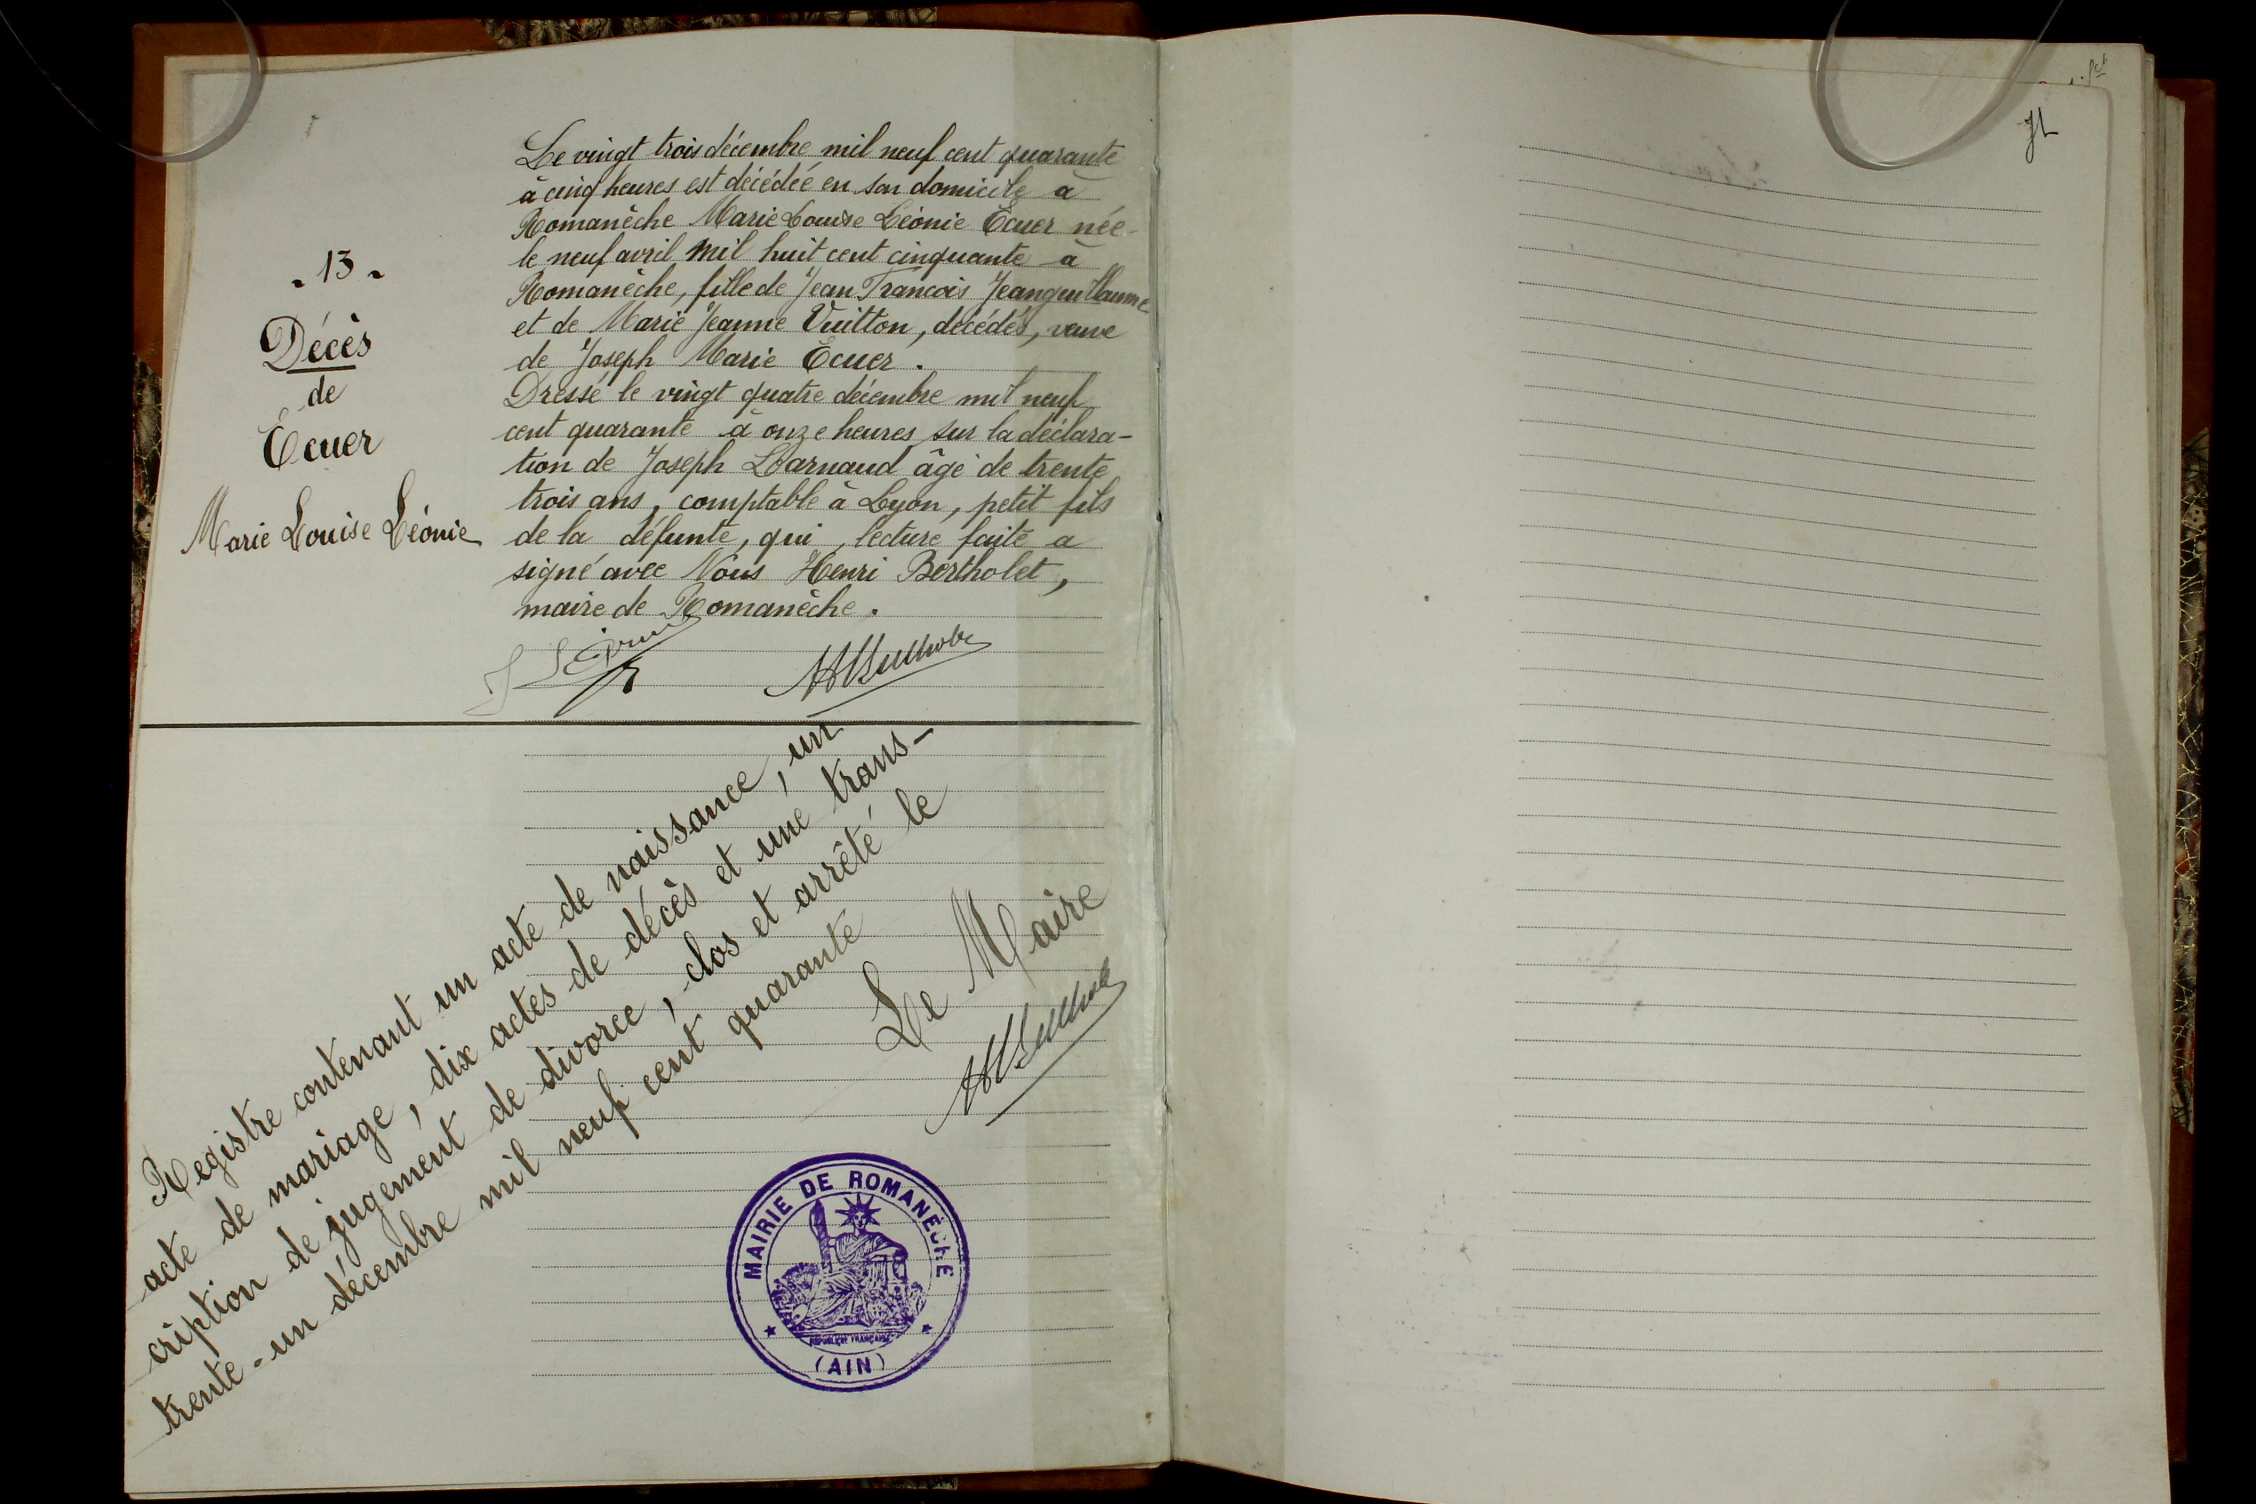 - 13 -
Décès
de
Écuer
Marie Louise Léonie
Le vingt trois décembre mil neuf cent quarante
à cinq heures est décédée en son domicile à
Romanèche Marie Louise Léonie Écuer née
le neuf avril mil huit cent cinquante à
Romanèche, fille de Jean François Jeanguillaume
et de Marie Jeanne Vuitton, décédés, veuve
de Joseph Marie Écuer.
Dressé le vingt quatre décembre mil neuf
cent quarante à onze heures sur la déclara-
tion de Joseph Larnaud âgé de trente
trois ans, comptable à Lyon, petit fils
de la défunte, qui, lecture faite a
signé avec Nous Henri Bertholet,
maire de Romanèche.
Registre contenant un acte de naissance, un
acte de mariage, dix actes de décès et une trans-
cription de jugement de divorce, clos et arrêté le
trente-un décembre mil neuf cent quarante
Le Maire
MAIRIE DE ROMANÈCHE
RÉPUBLIQUE FRANÇAISE
(AIN)